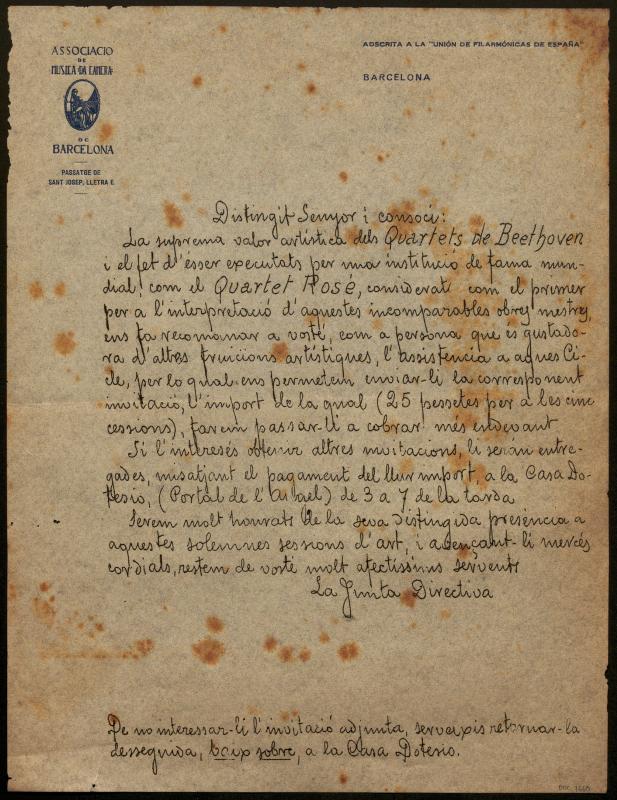 ASSOCIACIO
DE
MUSICA DA CAMERA
DE
BARCELONA
PASSATGE DE
SANT JOSEP, LLETRA E
ADSCRITA A LA "UNIÓN DE FILARMÓNICAS DE ESPAÑA"
BARCELONA
Distingit Senyor i consoci:
La suprema valor artística dels Quartets de Beethoven
i el fet d'ésser executats per una institució de fama mun-
dial com el Quartet Rosé, considerat com el primer
per a l'interpretació d'aquestes incomparables obres mestres,
ens fa recomanar a vosté, com a persona que es gustado-
ra d'altres fruicions artístiques, l'assistencia a aques Ci-
cle, per lo qual ens permetem enviar-li la corresponent
invitació, l'import de la qual (25 pessetes per a les cinc
cessions), farem passar-li a cobrar més endevant
Si l'interesés obtenir altres invitacions, li serán entre-
gades, mitsatjant el pagament del llur import, a la Casa Do-
tesio, (Portal de l'Angel) de 3 a 7 de la tarda
Serem molt honrats de la seva distingida presencia a
aquestes solemnes sessions d'art, i abençant-li mercés
cordials, restem de vosté molt afectissims servents
La Junta Directiva
De no interessar-li l'invitació adjunta, serveixis retornar-la
desseguida, baix sobre, a la Casa Dotesio.